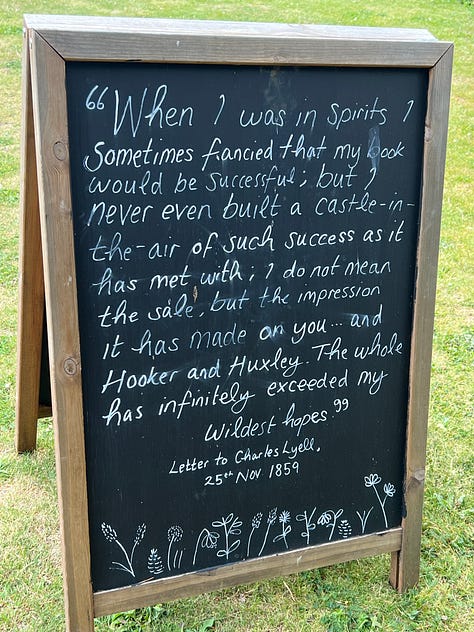 “When I was in Spirits I
Sometimes fancied that my book
would be successful; but I
never even built a castle-in-
the-air of such success as it
has met with; I do not mean
the sale, but the impression
it has made on you... and
Hooker and Huxley. The whole
has infinitely exceeded my
wildest hopes.”
Letter to Charles Lyell,
25th Nov 1859